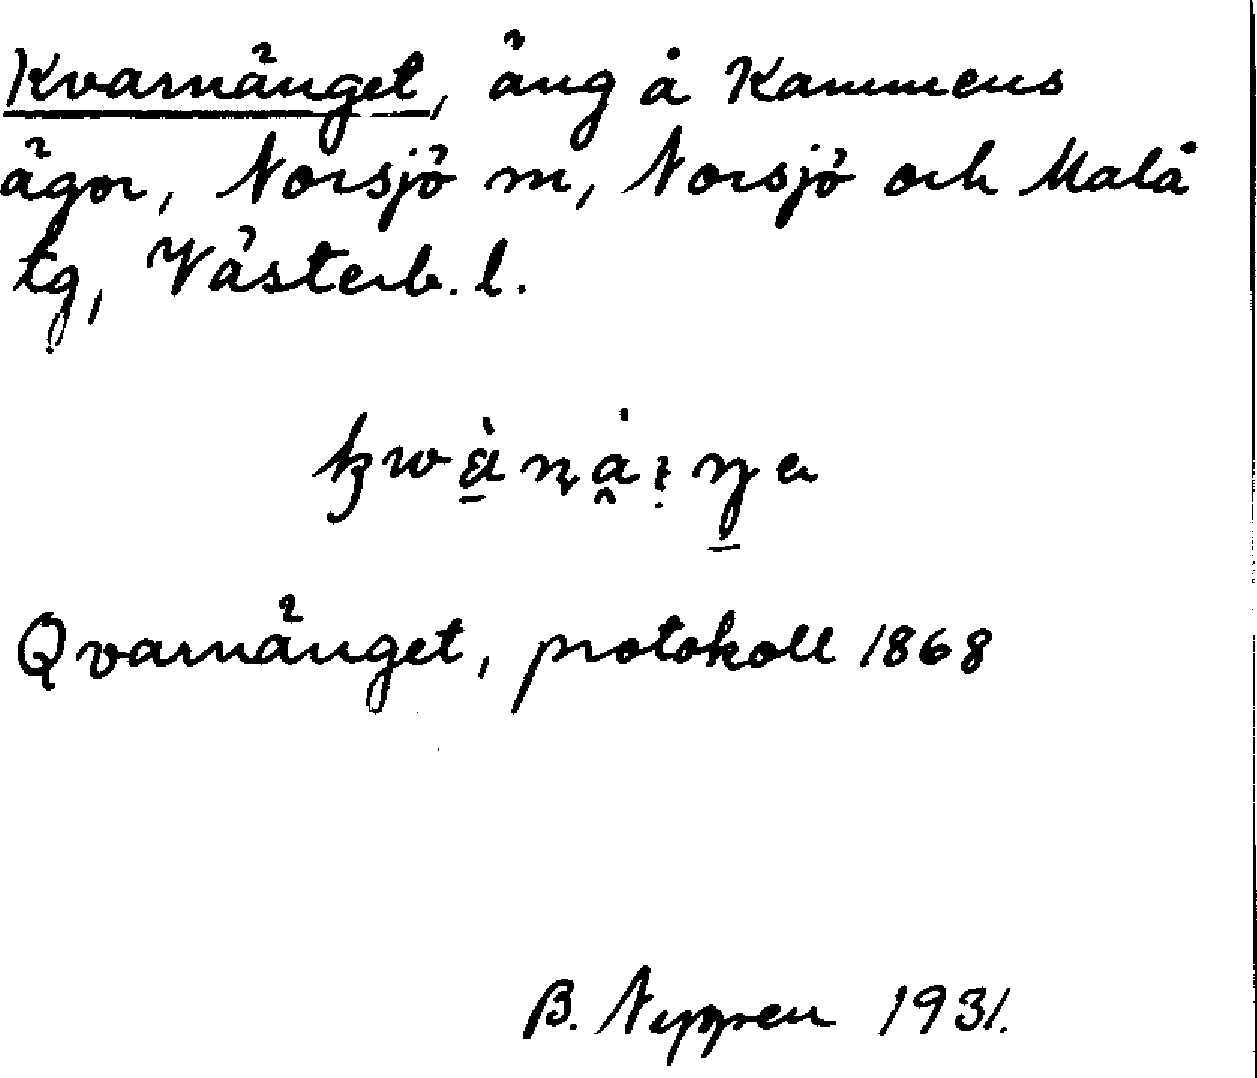 Kvarnänget, äng å Kammens
ägor, Norsjö m, Norsjö och Malå
tg, Västerb. l.
Qvarnänget, protokoll 1868
B. Nygren 1931.